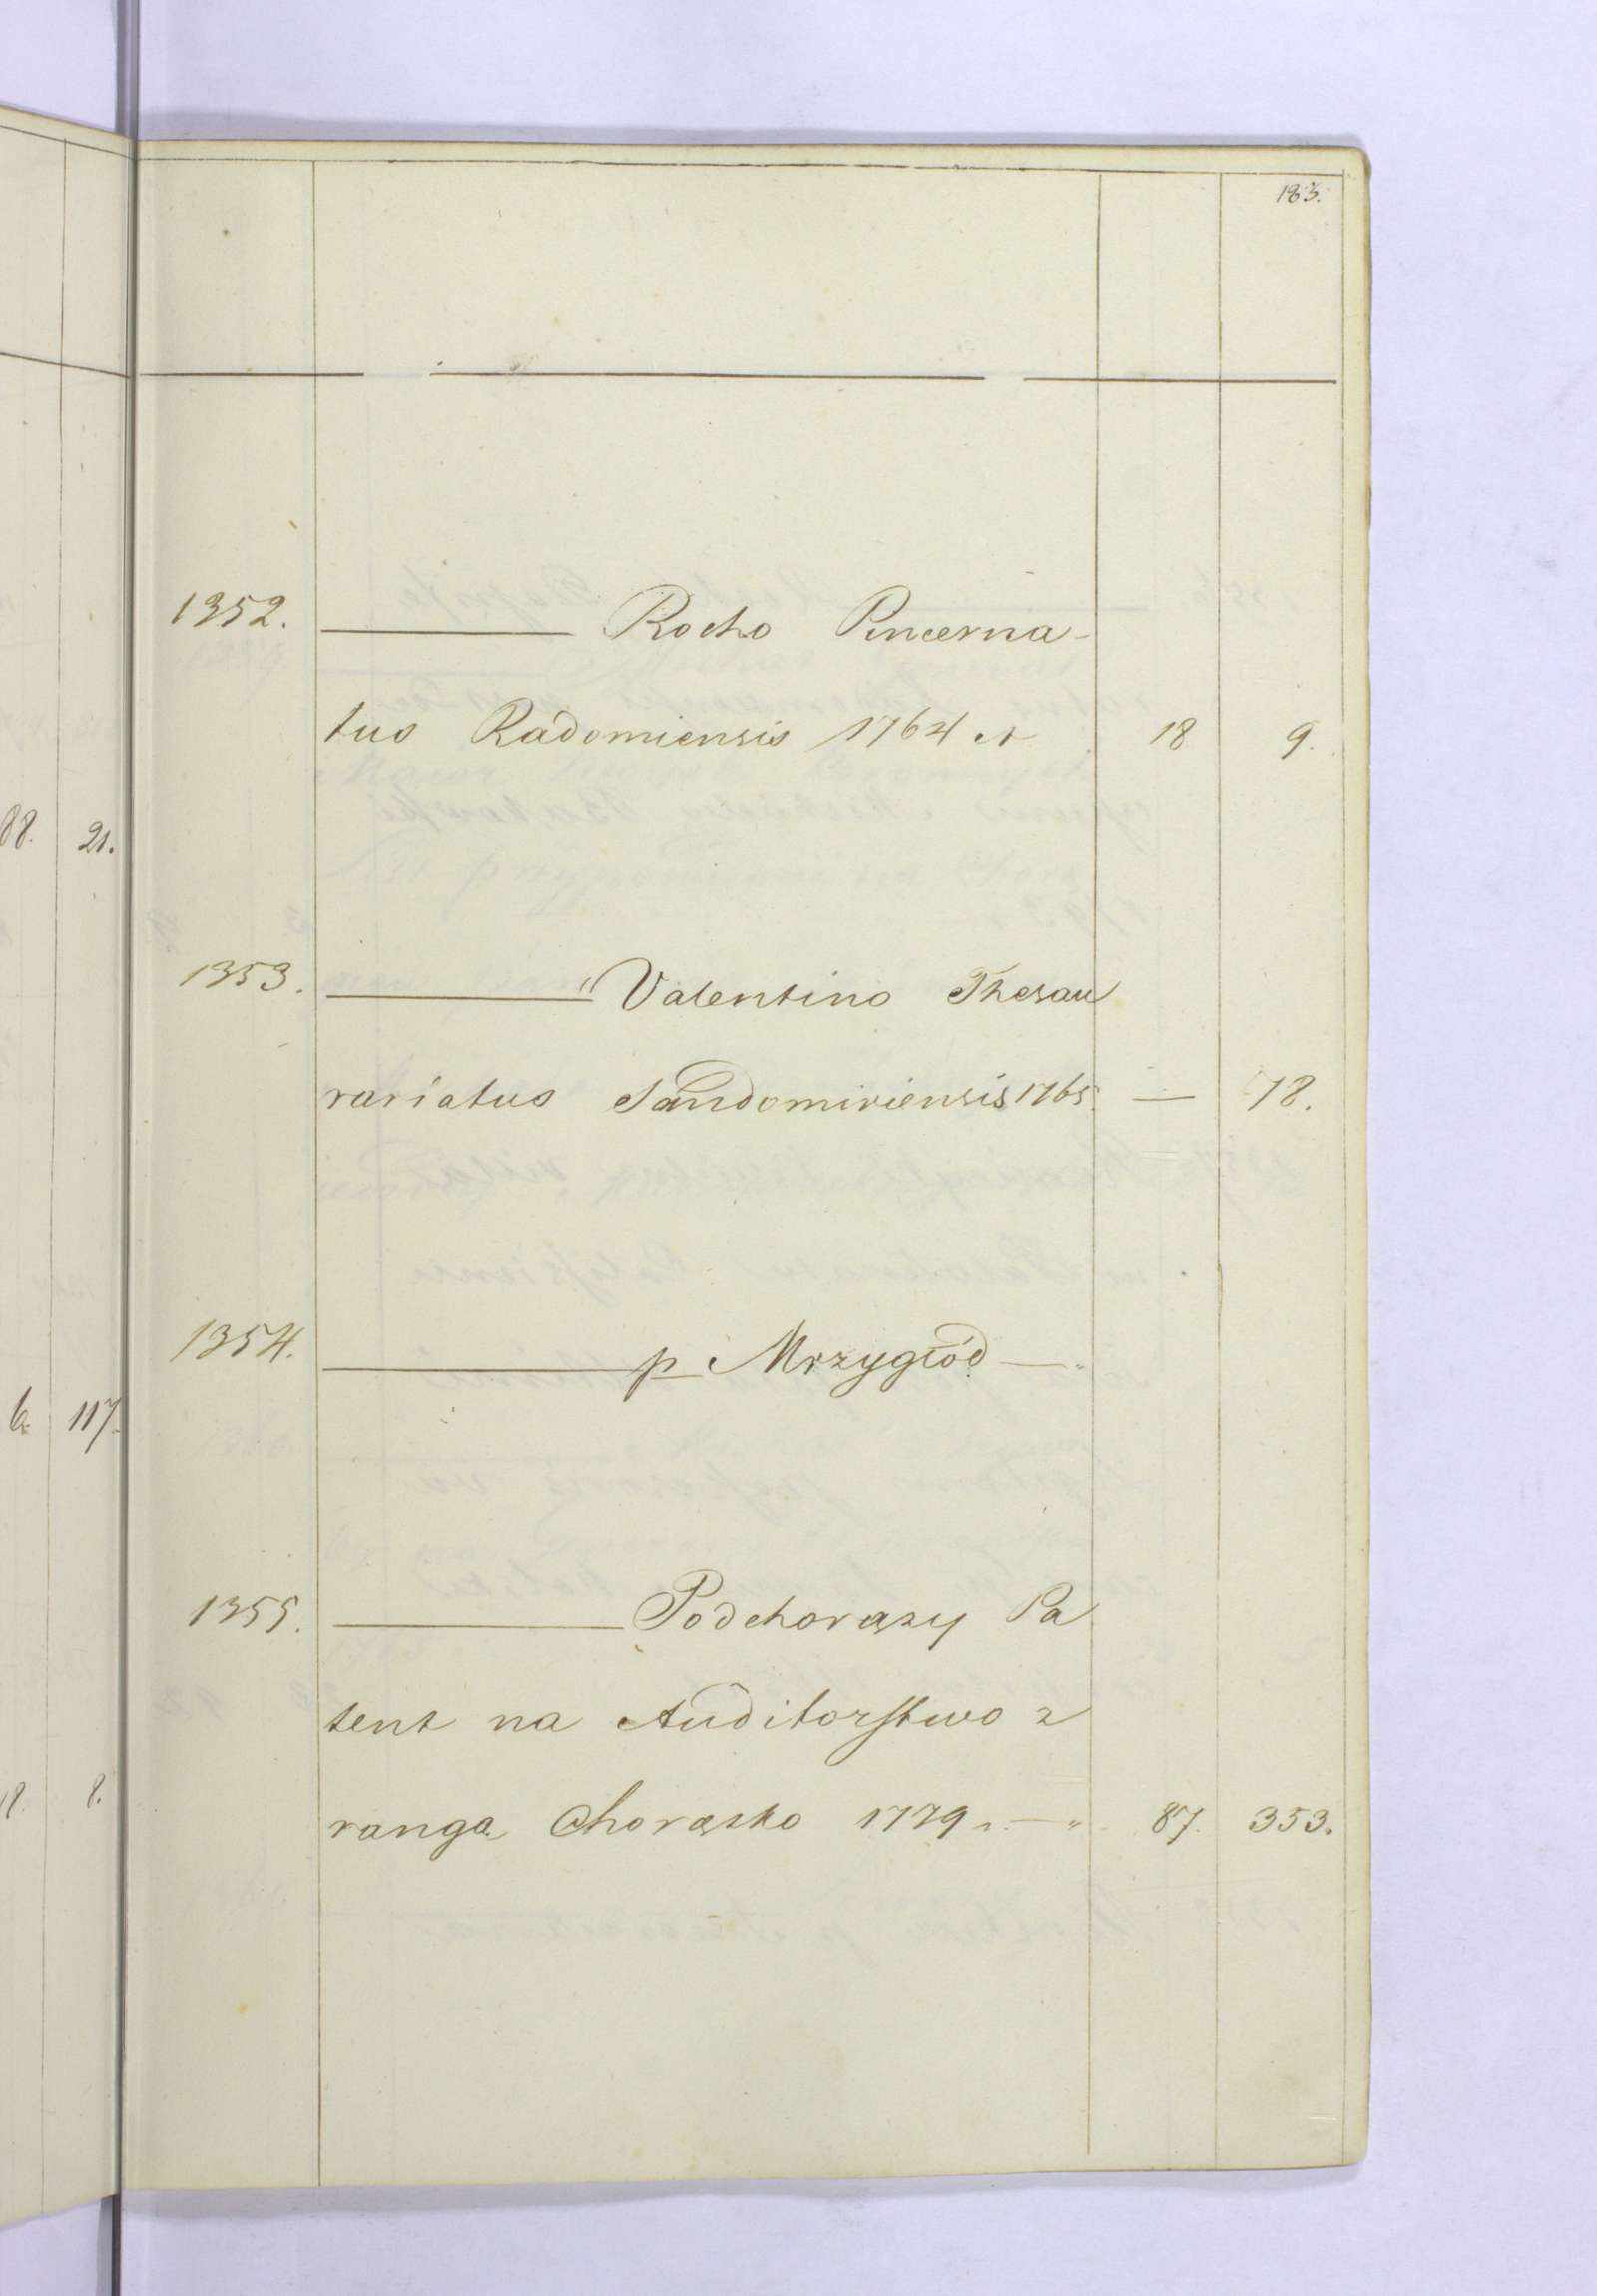 183.
1352. ——— Rocho Pincerna-
tus Radomiensis 1764 r 18 9.
88. 21.
1353. ——— " Valentino Thesau
rariatus Sandomiriensis 1765. — 18.
1354. ——— p Mrzygłód —"
6. 117.
1355. ——— Podchorąży Pa
tent na Auditorstwo z
rangą Chorąsko 1779 r. —" 87. 353.
8.